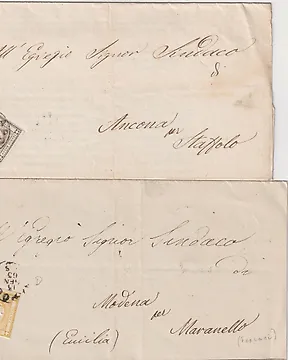 All' Egregio Signor Sindaco
di
Ancona per
Staffolo
All' Egregio Signor Sindaco
di
Modena per
(Emilia) Maranello